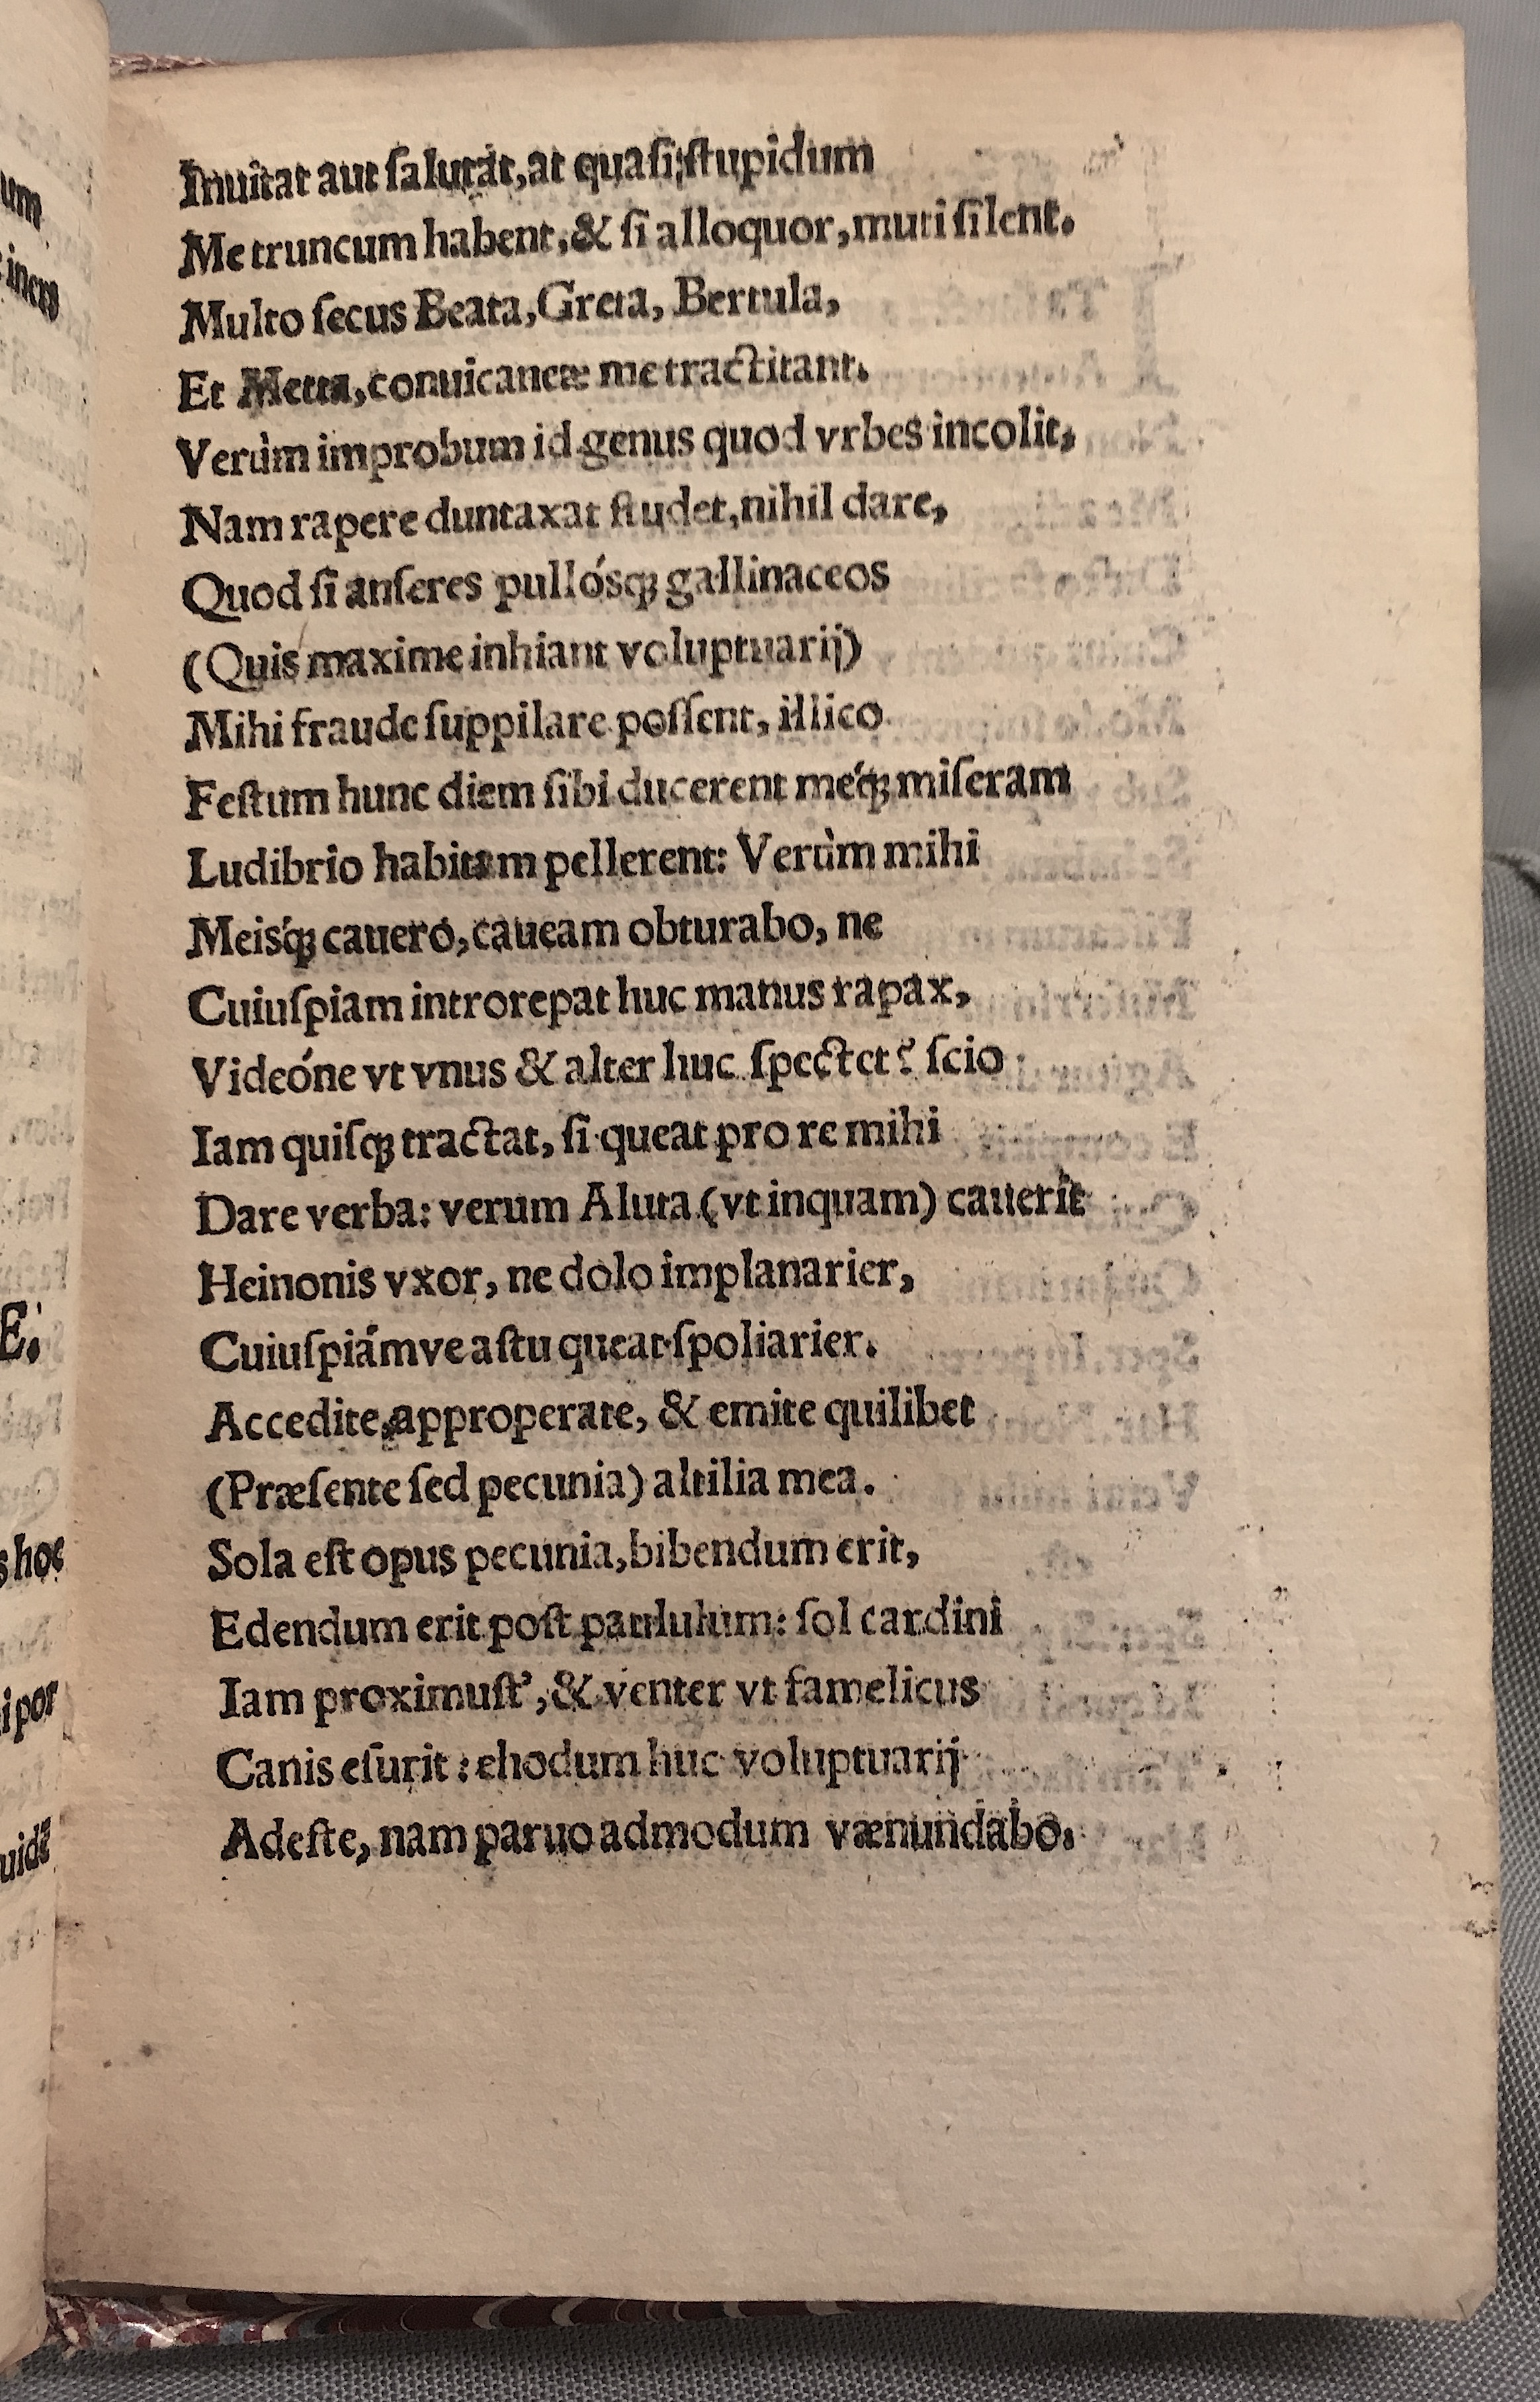 Inuitat aut ſalutat, at quaſi ſtupidum
Me truncum habent, & ſi alloquor, muti ſilent.
Multo ſecus Beata, Greta, Bertula,
Et Metta, conuicaneæ me tractitant.
Verùm improbum id genus quod vrbes incolit,
Nam rapere duntaxat ſtudet, nihil dare,
Quod ſi anſeres pullósq; gallinaceos
(Quis maxime inhiant voluptuarij)
Mihi fraude ſuppilare poſſent, illico
Feſtum hunc diem ſibi ducerent meq́; miſeram
Ludibrio habitam pellerent: Verùm mihi
Meisq́; cauero, caueam obturabo, ne
Cuiuſpiam introrepat huc manus rapax,
Videóne vt vnus & alter huc ſpectet? ſcio
Iam quiſq; tractat, ſi queat pro re mihi
Dare verba: verum Aluta (vt inquam) cauerit
Heinonis vxor, ne dolo implanarier,
Cuiuſpiámve aſtu queat ſpoliarier.
Accedite, approperate, & emite quilibet
(Præſente ſed pecunia) altilia mea.
Sola eſt opus pecunia, bibendum erit,
Edendum erit poſt paululum: ſol cardini
Iam proximuſt’, & venter vt famelicus
Canis eſurit: ehodum huc voluptuarij
Adeſte, nam paruo admodum vænundabo.
E.
s hoc